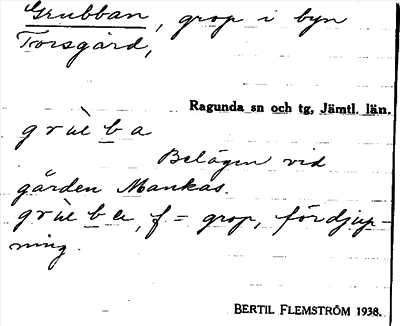 Grubban, grop i byn
Torsgård,
Ragunda sn och tg, Jämtl. län.
Belägen vid
gården Mankas.
f = grop, fördjup-
ning.
BERTIL FLEMSTRÖM 1938.